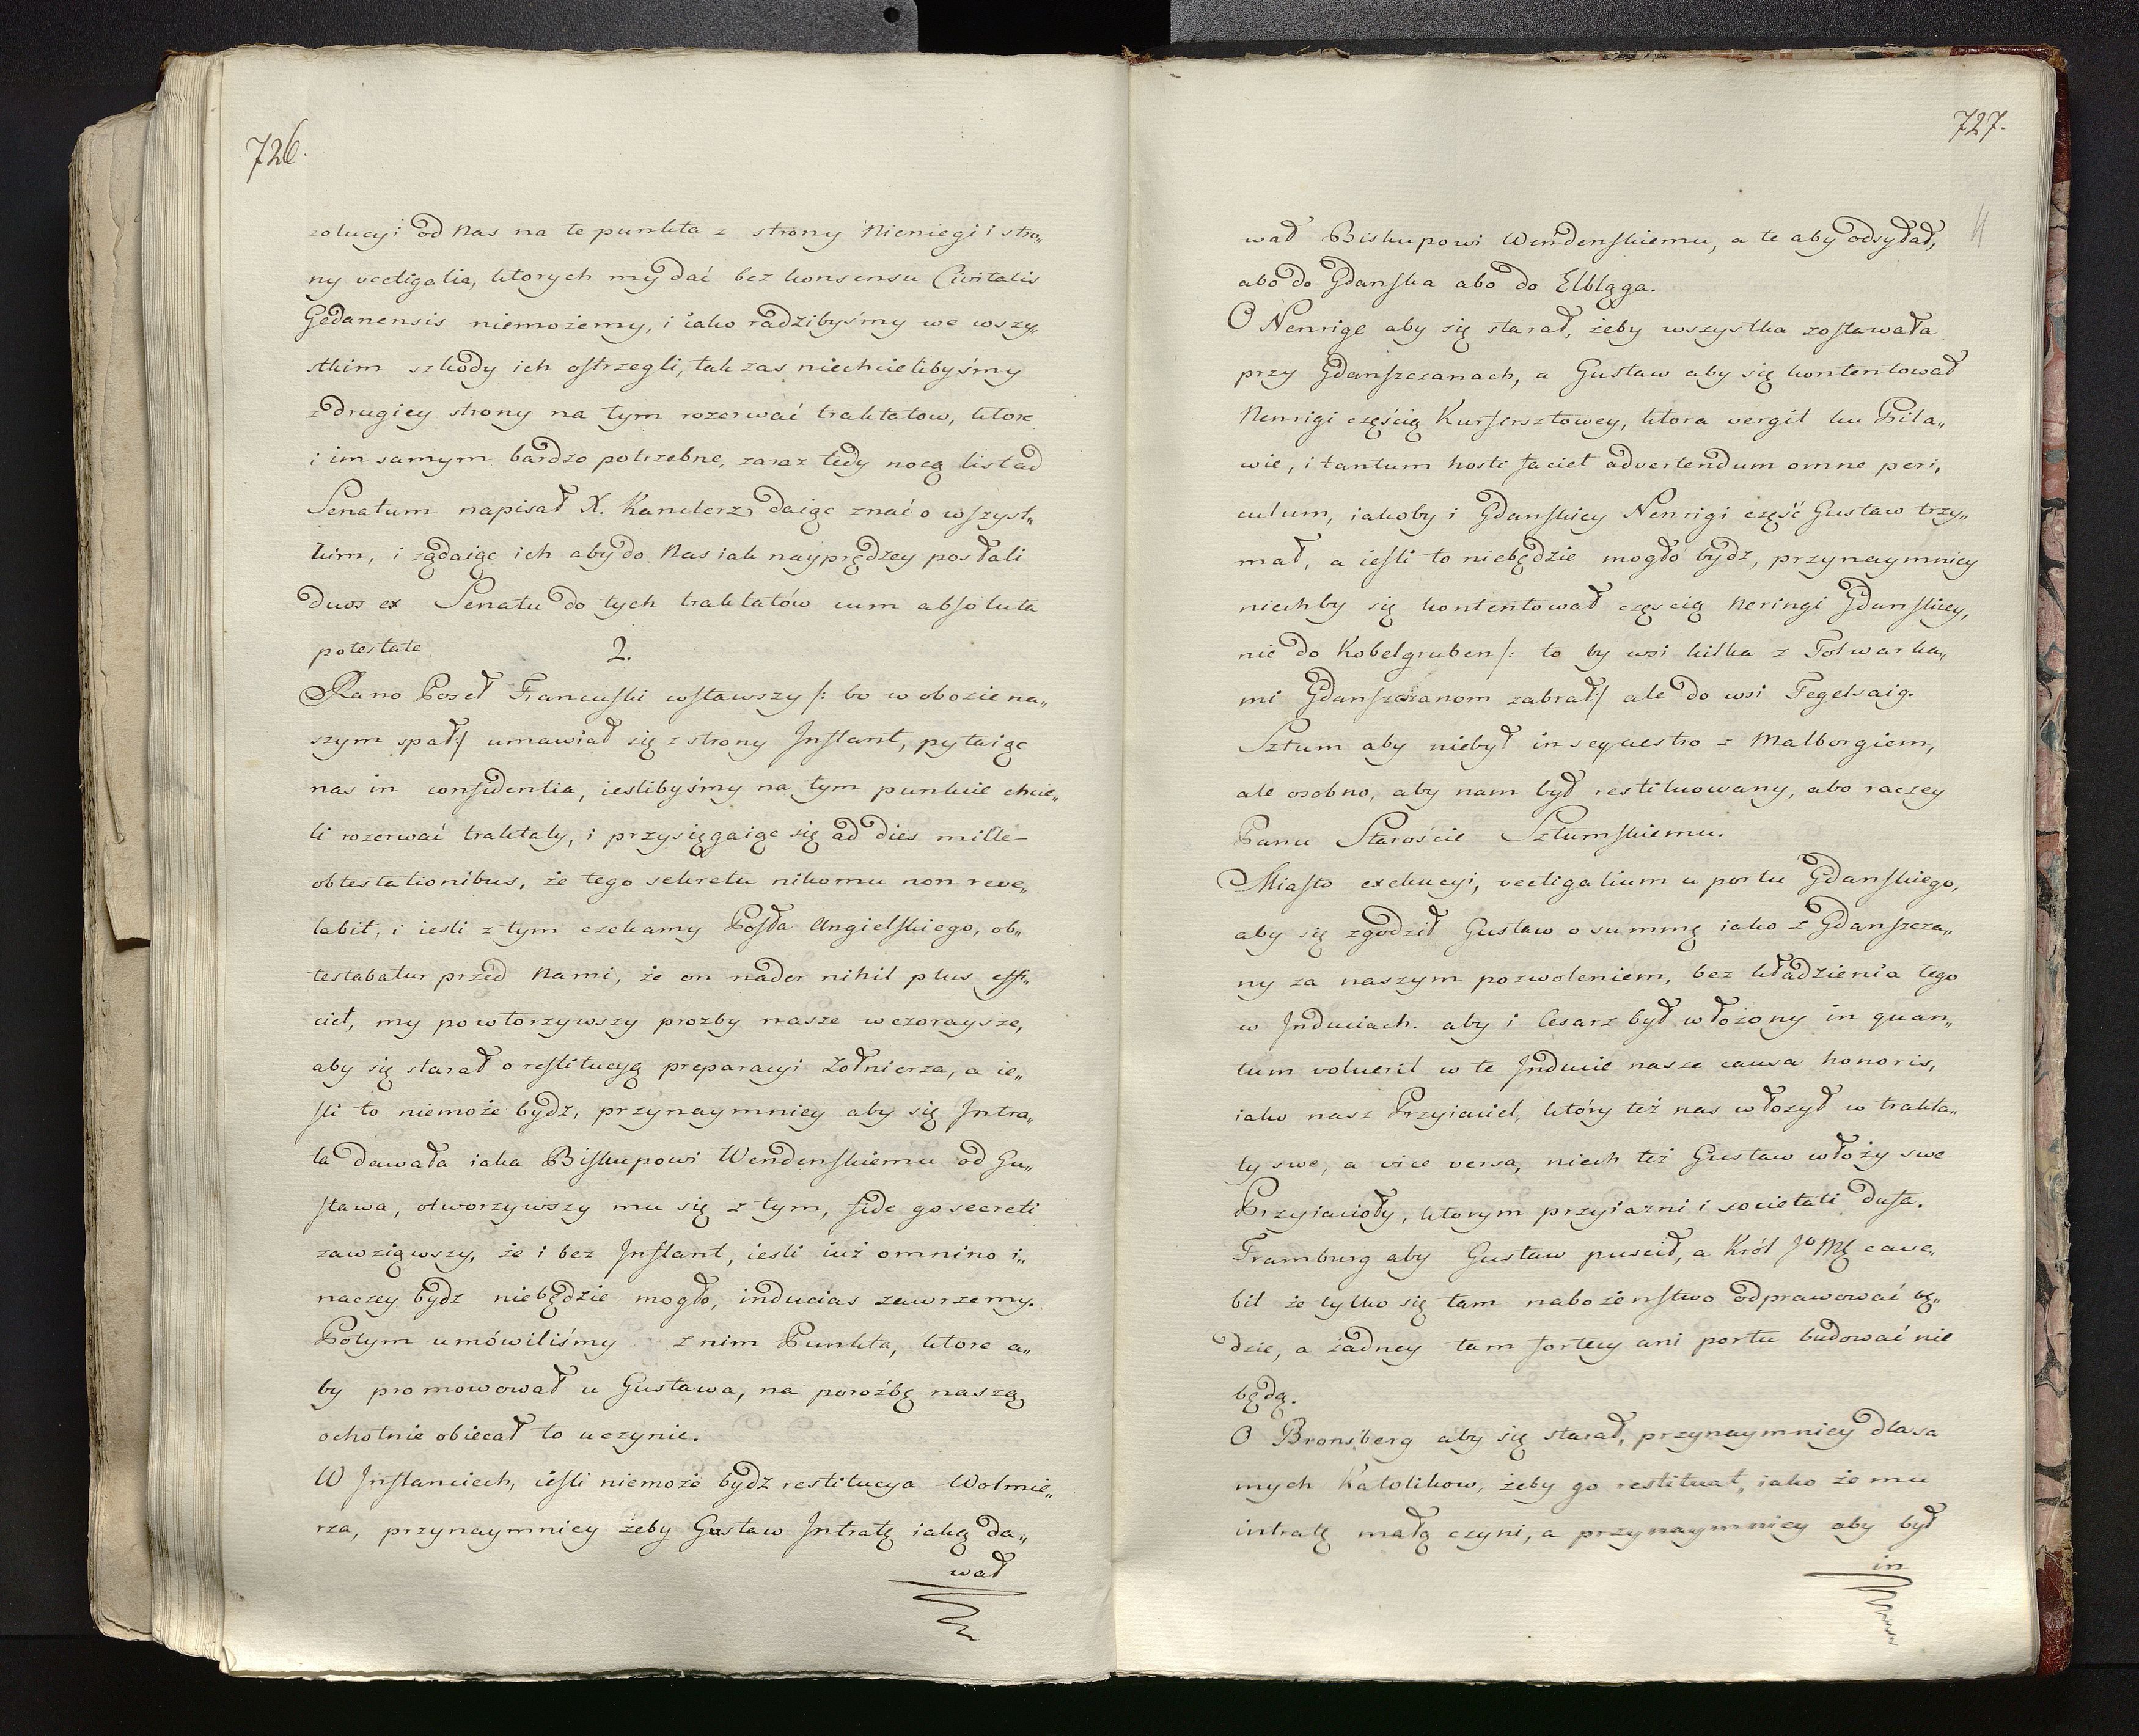 726.
zolucyi od Nas na te punkta z strony Nieniegi i stro„
ny vectigalia, ktorych my dać bez konsensu Civitatis
Gedanensis niemożemy, i iako radzibyśmy we wszy„
stkim szkody ich ostrzegli, tak zas niechcielibyśmy
z drugiey strony na tym rozerwać traktatow, ktore
i im samym bardzo potrzebne, zaraz tedy nocą list ad
Senatum napisał X. Kanclerz daiąc znać o wszyst„
kim, i ządaiąc ich aby do Nas iak nayprędzey posłali
duos ex Senatu do tych traktatów cum absoluta
potestate 2.
Rano Poseł Francuski wstawszy /: bo w obozie na„
szym spał :/ umawiał się z strony Inflant, pytaiąc
nas in confidentia, ieslibyśmy na tym punkcie chcie„
li rozerwać traktaty, i przysięgaiąc się ad dies mille
obtestationibus, że tego sekretu nikomu non reve„
labit, i iesli z tym czekamy Posła Angielskiego, ob„
testabatur przed Nami, że on nader nihil plus effi„
ciet, my powtorzywszy prozby nasze wczoraysze,
aby się starał o restitucyą preparacyi Żołnierza, a ie„
sli to niemoże bydz, przynaymniey aby się Intra„
ta dawała iaka Biskupowi Wendenskiemu od Gu„
stawa, otworzywszy mu się z tym, fide go secreti
zawziąwszy, że i bez Inflant, iesli iuż omnino i„
naczey bydz niebędzie mogło, inducias zawrzemy.
Potym umówiliśmy z nim Punkta, ktore a„
by promowował u Gustawa, na poroźbę naszą
ochotnie obiecał to uczynic.
W Inflanciech, iesli niemoże bydz restitucya Wolmie„
rza, przynaymniey żeby Gustaw Intratę iaką da„
wał
727.
wał Biskupowi Wendenskiemu, a te aby odsyłał,
abo do Gdanska abo do Elbląga.
O Nenrige aby się starał, żeby wszystka zostawała
przy Gdanszczanach, a Gustaw aby się kontentował
Nenrigi częścią Kurfersztowey, ktora vergit ku Pila„
wie, i tantum hosti faciet advertendum omne peri„
culum, iakoby i Gdanskiey Nenrigi część Gustaw trzy„
mał, a iesli to niebędzie mogło bydz, przynaymniey
niechby się kontentował częscią Neringi Gdanskiey,
nie do Kobelgruben /: to by wsi kilka z Folwarka„
mi Gdanszczanom zabrał :/ ale do wsi Fegelsaig.
Sztum aby niebył in sequestro z Malborgiem,
ale osobno, aby nam był restituowany, abo raczey
Panu Staroście Sztumskiemu.
Miasto exekucyi, vectigalium u portu Gdanskiego,
aby się zgodził Gustaw o summę iako z Gdanszcza„
ny za naszym pozwoleniem, bez kładzienia tego
w Induciach. aby i Cesarz był włożony in quan„
tum voluerit w te Inducie nasze causa honoris,
iako nasz Przyiaciel, który też nas włozył w trakta„
ty swe, a vice versa, niech też Gustaw włoży swe
Przyiacioły, ktorym przyiazni i societati dufa.
Framburg aby Gustaw puscił, a Król Jo Mę cave„
bit że tylko się tam nabożenstwo odprawować bę„
dzie, a żadney tam fortecy ani portu budować nie
będą.
O Bronsberg aby się starał, przynaymniey dla sa
mych Katolikow, żeby go restituat, iako że mu
intratę małą czyni, a przynaymniey aby był
in